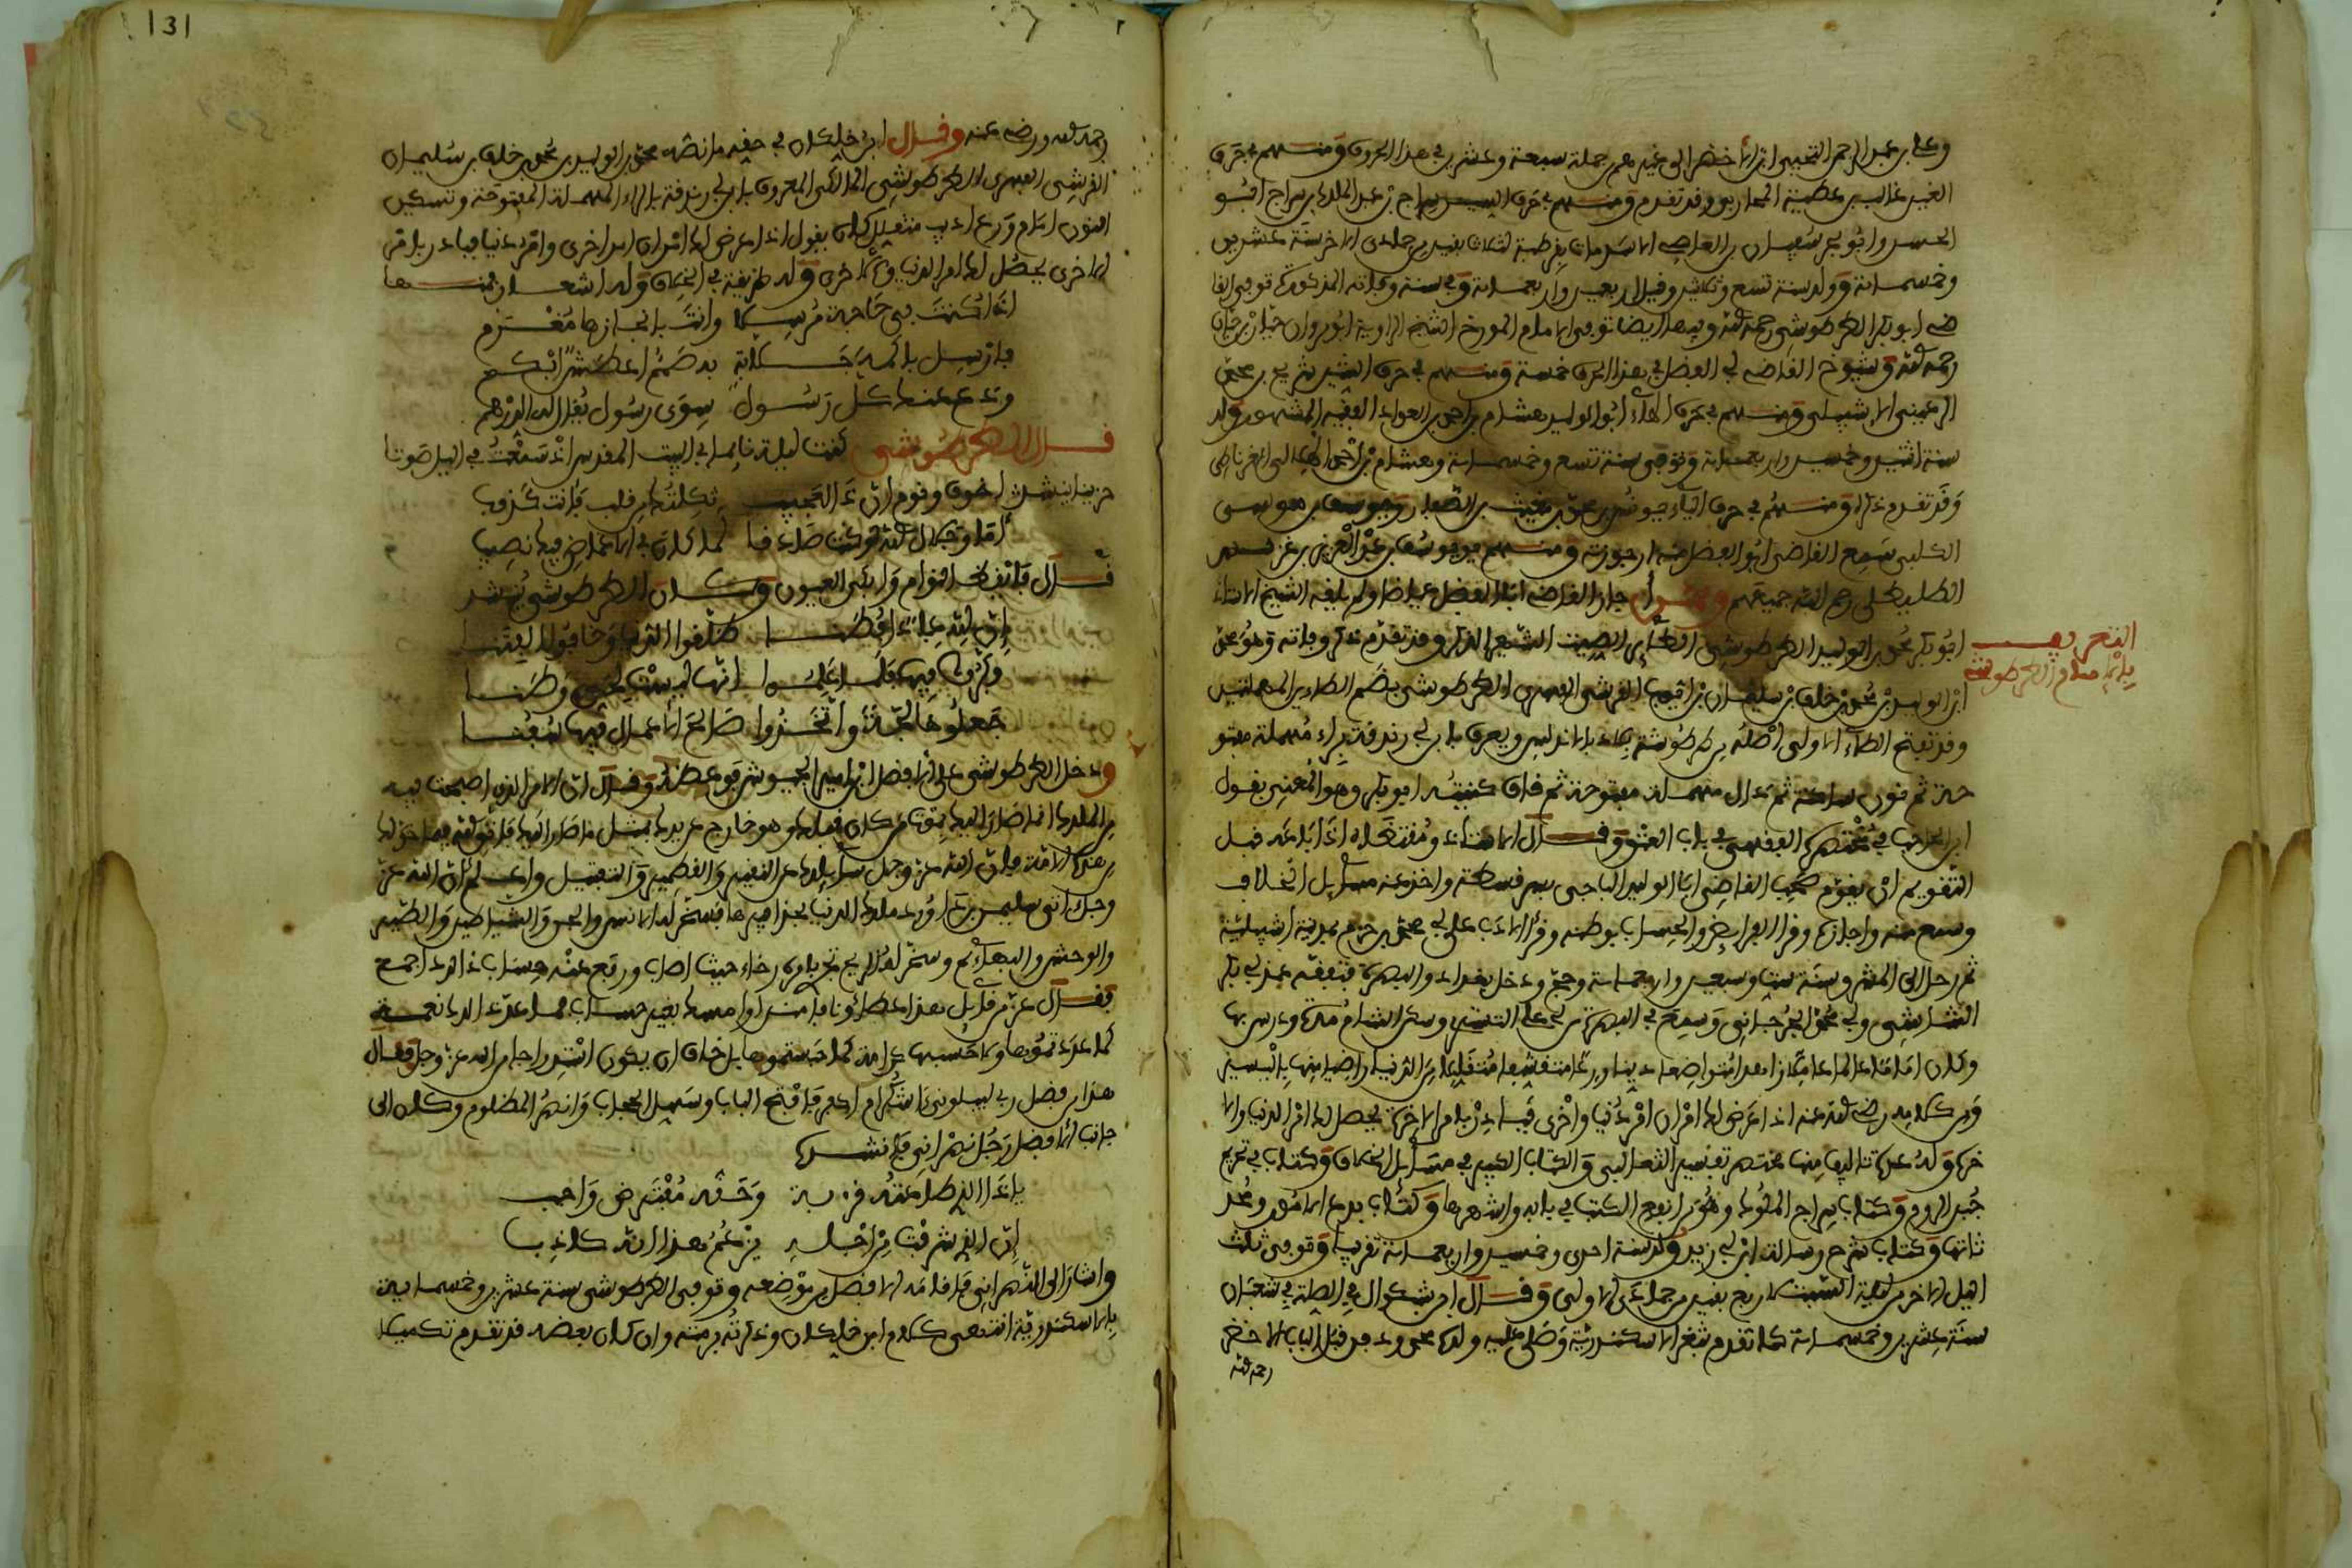 وعلي بن عبد الرحمن التجيبي ابن الاخضر الى غيرهم جملة سبعة وعشرين في هذا الحروف ومنهم في حرف
الغين غالب بن عطية المحاربي وقد تقدم ومنهم في حرف السين سراج بن عبد الملك بن سراج ابو
الحسين وابو بحر سفيان بن العاصي الاسدي مات بقرطبة لثلاث بقين من جمادى الاخرة سنة عشرين
وخمسمائة وولد سنة تسع وثلاثين وقيل اربعين واربعمائة وفي سنة وفاته المذكورة توفي القا
ضي ابو بكر الطرطوشي رحمه الله وفيها ايضا توفي الامام المورخ الشيخ الراوية ابو مروان بن حيان
رحمه الله وشيوخ القاضي ابي الفضل في هذا الحرف خمسة ومنهم في حرف الشين شريح بن محمد
الرعيني الاشبيلي ومنهم في حرف الهاء ابو الوليد هشام بن احمد بن العواد الفقيه المشهور ولد
سنة اثنتين وخمسين واربعمائة وتوفي سنة تسع وخمسمائة وهشام بن احمد الهلالي الغرناطي
وقد تقدم ذكره ومنهم في حرف الياء يونس بن محمد بن مغيث بن الصفار ويوسف بن موسى
الكلبي سمع القاضي ابو الفضل منه ارجوزته ومنهم يوسف بن عبد العزيز بن
الطليطلي رحم الله جميعهم وممن اجاز القاضي ابا الفضل عياضا ولم يلقه الشيخ الاستاذ
ابو بكر محمد بن الوليد الطرطوشي الطائر الصيت الشهير الذكر وقد تقدم ذكر وفاته وهو محمد
التعريف
بالامام الطرطوشي
ابن الوليد بن محمد بن خلف بن سليمان بن ايوب القرشي الفهري الطرطوشي بضم الطاءين المهملتين
وقد تفتح الطاء الاولى اصله من طرطوشة بلاد بالاندلس ويعرف بابن ابي رندقة براء مهملة مفتو
حة ثم نون ساكنة ثم دال مهملة مفتوحة ثم قاف كنيته ابو بكر وهو المعني بقول
ابن الحاجب في مختصره الفقهي في باب العتق وقال الاستاذ
التقويم ان يقوم صحب القاضي ابا الوليد الباجي بسرقسطة واخذ عنه مسائل الخلاف
وسمع منه واجازه وقرا الفرائض والحساب بوطنه وقرا الادب على ابي محمد بن حزم بمدينة اشبيلية
ثم رحل الى المشرق سنة ست وسبعين واربعمائة وحج ودخل بغداد والبصرة فتفقه عند ابي بكر
الشاشي وابي محمد الجرجاني وسمع في البصرة من ابي علي التستري وسكن الشام مدة ودرس بها
وكان اماما عالما عاملا زاهدا متواضعا دينا ورعا متقشفا متقللا من الدنيا راضيا منها باليسير
ومن كلامه رضي الله عنه اذا عرض لك امران امر دنيا واخرى فبادر بامر الاخرة يحصل لك امر الدنيا والا
خرة وله عدة تاليف منها مختصر تفسير الثعالبي والكتاب الكبير في مسائل الخلاف وكتاب في تحريم
جبن الروم وكتاب سراج الملوك وهو من انفع الكتب في بابه واشهرها وكتاب بدع الامور ومحد
ثاتها وكتاب شرح رسالة ابن ابي زيد ولد سنة احدى وخمسين واربعمائة تقريبا وتوفي ثلث
الليل الاخر من ليلة السبت لاربع بقين من جمادى الاولى وقال ابن بشكوال في الصلة في شعبان
سنة عشرين وخمسمائة كما تقدم بثغر الاسكندرية وصلى عليه ولده محمد ودفن قبل الباب الاخضر
رحمه الله
رحمه الله ورضي عنه وقال ابن خلكان في حقه ما نصه محمد بن الوليد بن محمد بن خلف بن سليمان
القرشي الفهري الطرطوشي المالكي المعروف بابن ابي رندقة بالراء المهملة المفتوحة وتسكين
النون امام ورع اديب متقلل كان يقول اذا عرض لك امران امر اخرى وامر دنيا فبادر بامر
الاخرى يحصل لك امر الدنيا والاخرى وله طريقة في الخلاف وله اشعار فمنها
اذا كنت في حاجة مرسلا وانت بانجازها مغرم
فارسل باكمه خلابة به صمم اغطش ابكم
ودع عنك كل رسول سوى رسول يقال له الدرهم
قال الطرطوشي كنت ليلة نائما في البيت المقدس اذ سمعت في الليل صوتا
حزينا ينشد اخوف ونوم ان ذا لعجيب ثكلتك من قلب فانت كذوب
اما وجلال الله لو كنت صادقا لما كان في الاغماض فيك نصيب
قال فايقظ النوام وابكى العيون وكان الطرطوشي ينشد
ان لله عبادا فطنا طلقوا الدنيا وخافوا الفتنا
فكروا فيها فلما علموا انها ليست لحي وطنا
جعلوها لجة واتخذوا صالح الاعمال فيها سفنا
ودخل الطرطوشي على الافضل ابن امير الجيوش فوعظه وقال ان الامر الذي اصبحت فيه
من الملك انما صار اليك بموت من كان قبلك وهو خارج عن يدك بمثل ما صار اليك فاتق الله فيما خولك
من هذه الامة فان الله عز وجل سائلك عن النقير والقطمير والفتيل واعلم ان الله عز
وجل اتى سليمن بن داود ملك الدنيا بحذافيرها فسخر له الانس والجن والشياطين والطير
والوحش والبهائم وسخر له الريح تجري بامره رخاء حيث اصاب ورفع عنه حساب ذلك اجمع
فقال عز من قائل هذا عطاؤنا فامنن او امسك بغير حساب فما عد ذلك نعمة
كما عددتموها ولا حسبها كرامة كما حسبتموها بل خاف ان يكون استدراجا من الله عز وجل فقال
هذا من فضل ربي ليبلوني ااشكر ام اكفر فافتح الباب وسهل الحجاب وانصر المظلوم وكان الى
جانب الافضل رجل نصراني فانشده
يا ذا الذي طاعته قربة وحقه مفترض واجب
ان الذي شرفت من اجله يزعم هذا انه كاذب
واشار الى النصراني فاقامه الافضل من موضعه وتوفي الطرطوشي سنة عشرين وخمسماية
بالاسكندرية انتهى كلام ابن خلكان وذكرته برمته وان كان بعضه قد تقدم تكميلا
131